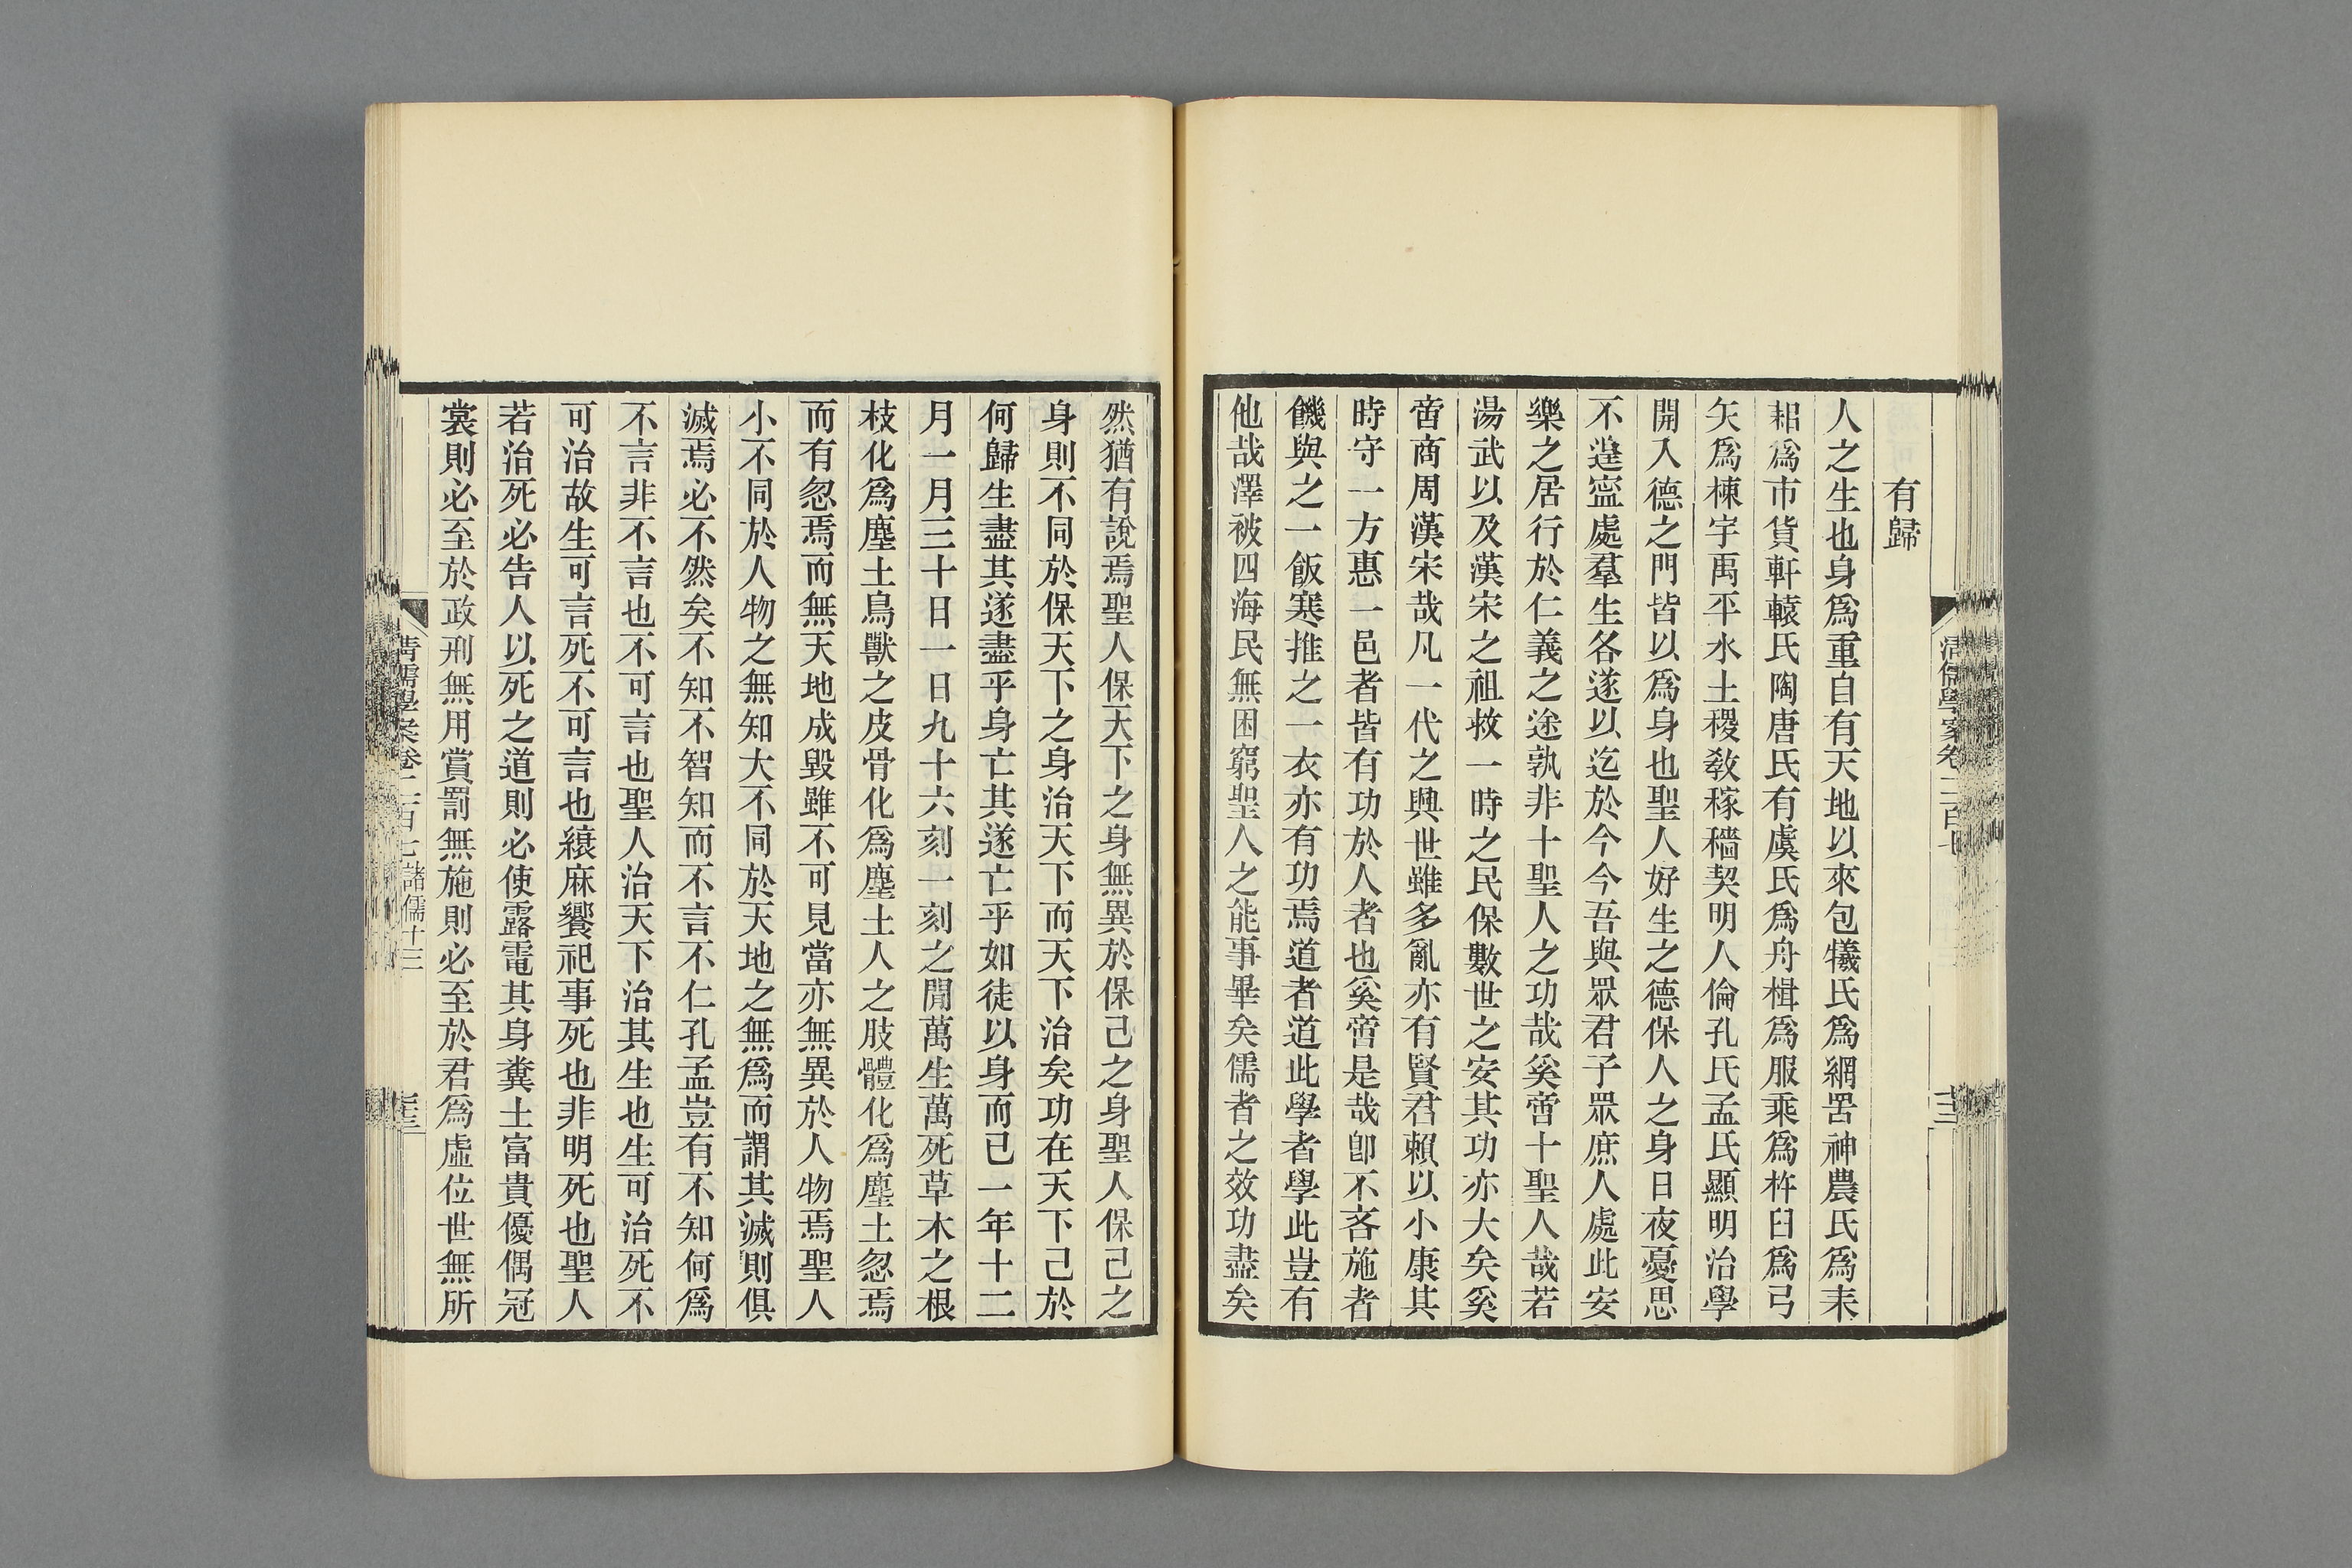 清儒學案卷二百七
十三
有歸
人之生也身爲重自有天地以來包犧氏爲網罟神農氏爲耒
耜爲市貨軒轅氏陶唐氏有虞氏爲舟楫爲服乘爲杵臼爲弓
矢爲棟宇禹平水土稷敎稼穡契明人倫孔氏孟氏顯明治學
開入德之門皆以爲身也聖人好生之德保人之身日夜憂思
不遑寍處羣生各遂以迄於今今吾與眾君子眾庶人處此安
樂之居行於仁義之途孰非十聖人之功哉奚啻十聖人哉若
湯武以及漢宋之祖救一時之民保數世之安其功亦大矣奚
啻商周漢宋哉凡一代之興世雖多亂亦有賢君賴以小康其
時守一方惠一邑者皆有功於人者也奚啻是哉卽不吝施者
饑與之一飯寒推之一衣亦有功焉道者道此學者學此豈有
他哉澤被四海民無困窮聖人之能事畢矣儒者之效功盡矣
然猶有說焉聖人保天下之身無異於保己之身聖人保己之
身則不同於保天下之身治天下而天下治矣功在天下己於
何歸生盡其遂盡乎身亡其遂亡乎如徒以身而已一年十二
月一月三十日一日九十六刻一刻之閒萬生萬死草木之根
枝化爲塵土鳥獸之皮骨化爲塵土人之肢體化爲塵土忽焉
而有忽焉而無天地成毀雖不可見當亦無異於人物焉聖人
小不同於人物之無知大不同於天地之無爲而謂其滅則俱
滅焉必不然矣不知不智知而不言不仁孔孟豈有不知何爲
不言非不言也不可言也聖人治天下治其生也生可治死不
可治故生可言死不可言也縗麻饗祀事死也非明死也聖人
若治死必告人以死之道則必使露電其身糞土富貴優偶冠
裳則必至於政刑無用賞罰無施則必至於君爲虛位世無所
清儒學案卷二百七 諸儒十三